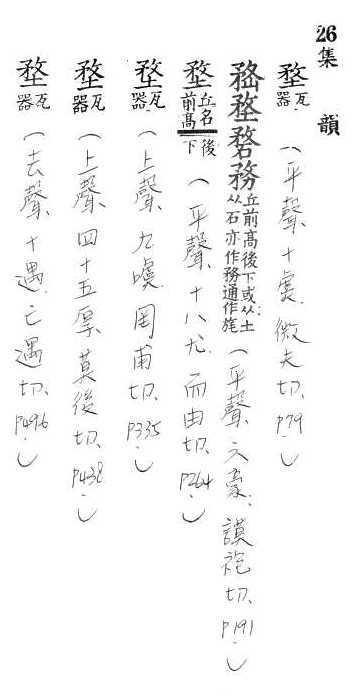 26集韻
堥瓦器（平聲、十虞、微夫切、P79.）
嵍堥䂇務丘前高後下或从土从石亦作務通作旄（平聲、六豪、謨袍切、P191.）
堥丘名前高後下（平聲、十八尤、而由切、P264.）
堥瓦器（上聲、九噳、罔甫切、P335.）
堥瓦器（上聲、四十五厚、莫後切、P438.）
堥瓦器（去聲、十遇、亡遇切、P496.）